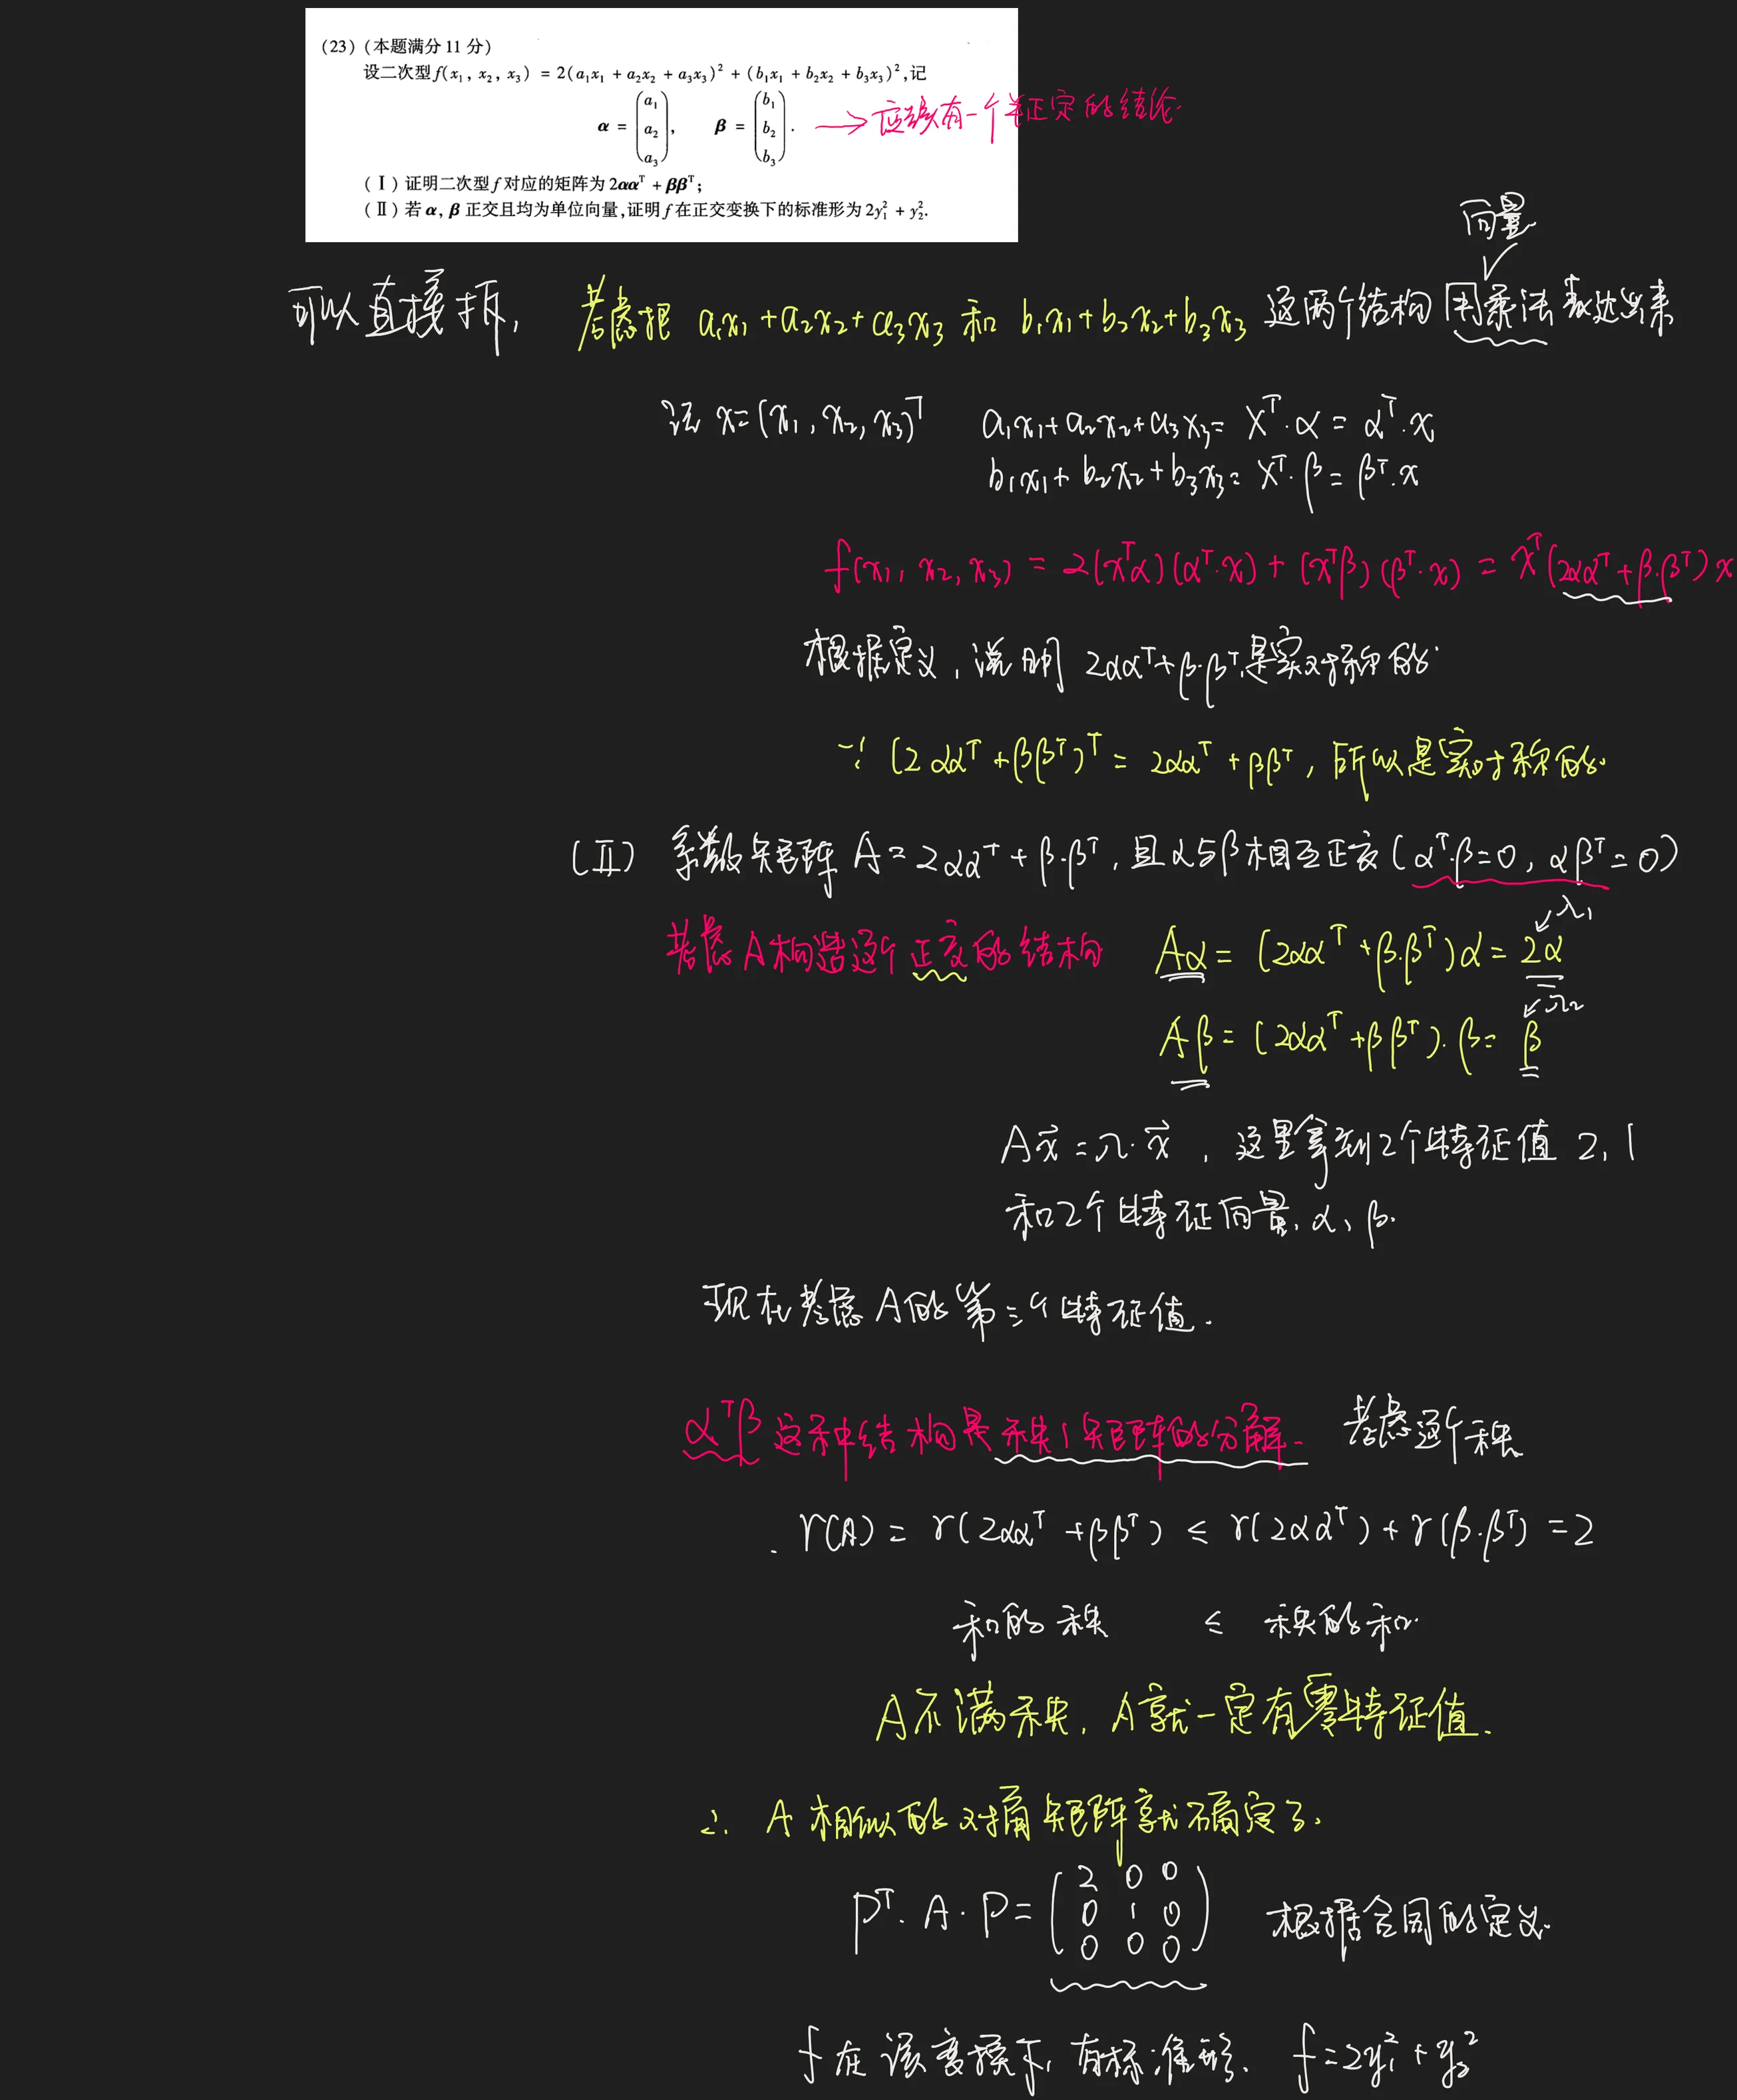 (23)(本题满分11分)
设二次型f(x₁, x₂, x₃) = 2(a₁x₁ + a₂x₂ + a₃x₃)² + (b₁x₁ + b₂x₂ + b₃x₃)²,记
α = (a₁ a₂ a₃), β = (b₁ b₂ b₃). → 应该有一个半正定的结论.
(Ⅰ)证明二次型f对应的矩阵为2ααᵀ + ββᵀ;
(Ⅱ)若α, β正交且均为单位向量,证明f在正交变换下的标准形为2y₁² + y₂².
向量
可以直接拆, 考虑把 a₁x₁+a₂x₂+a₃x₃ 和 b₁x₁+b₂x₂+b₃x₃ 这两个结构用乘法表达出来
记 x=(x₁, x₂, x₃)ᵀ a₁x₁+a₂x₂+a₃x₃= xᵀ·α = αᵀ·x
b₁x₁+b₂x₂+b₃x₃= xᵀ·β = βᵀ·x
f(x₁, x₂, x₃) = 2(xᵀα)(αᵀ·x) + (xᵀβ)(βᵀ·x) = xᵀ(2ααᵀ+β·βᵀ)x
根据定义, 说明 2ααᵀ+β·βᵀ是实对称的.
∵ (2ααᵀ+ββᵀ)ᵀ = 2ααᵀ+ββᵀ, 所以是实对称的.
(Ⅱ) 系数矩阵 A=2ααᵀ+β·βᵀ, 且α与β相互正交(αᵀ·β=0, αβᵀ=0)
考虑A构造这个正交的结构 Aα = (2ααᵀ+β·βᵀ)α = 2α ↙λ₁
Aβ = (2ααᵀ+ββᵀ)·β = β ↙λ₂
Ax⃗ = λ·x⃗, 这里拿到2个特征值 2, 1
和2个特征向量, α, β.
现在考虑A的第三个特征值.
αᵀβ 这种结构是秩1矩阵的分解. 考虑这个秩
r(A) = r(2ααᵀ+ββᵀ) ≤ r(2ααᵀ) + r(β·βᵀ) = 2
和的秩 ≤ 秩的和
A不满秩, A就一定有零特征值.
∴ A相似的对角矩阵就确定了.
Pᵀ·A·P = (2 0 0
0 1 0
0 0 0) 根据合同的定义.
f在该变换下, 有标准形. f=2y₁²+y₂²